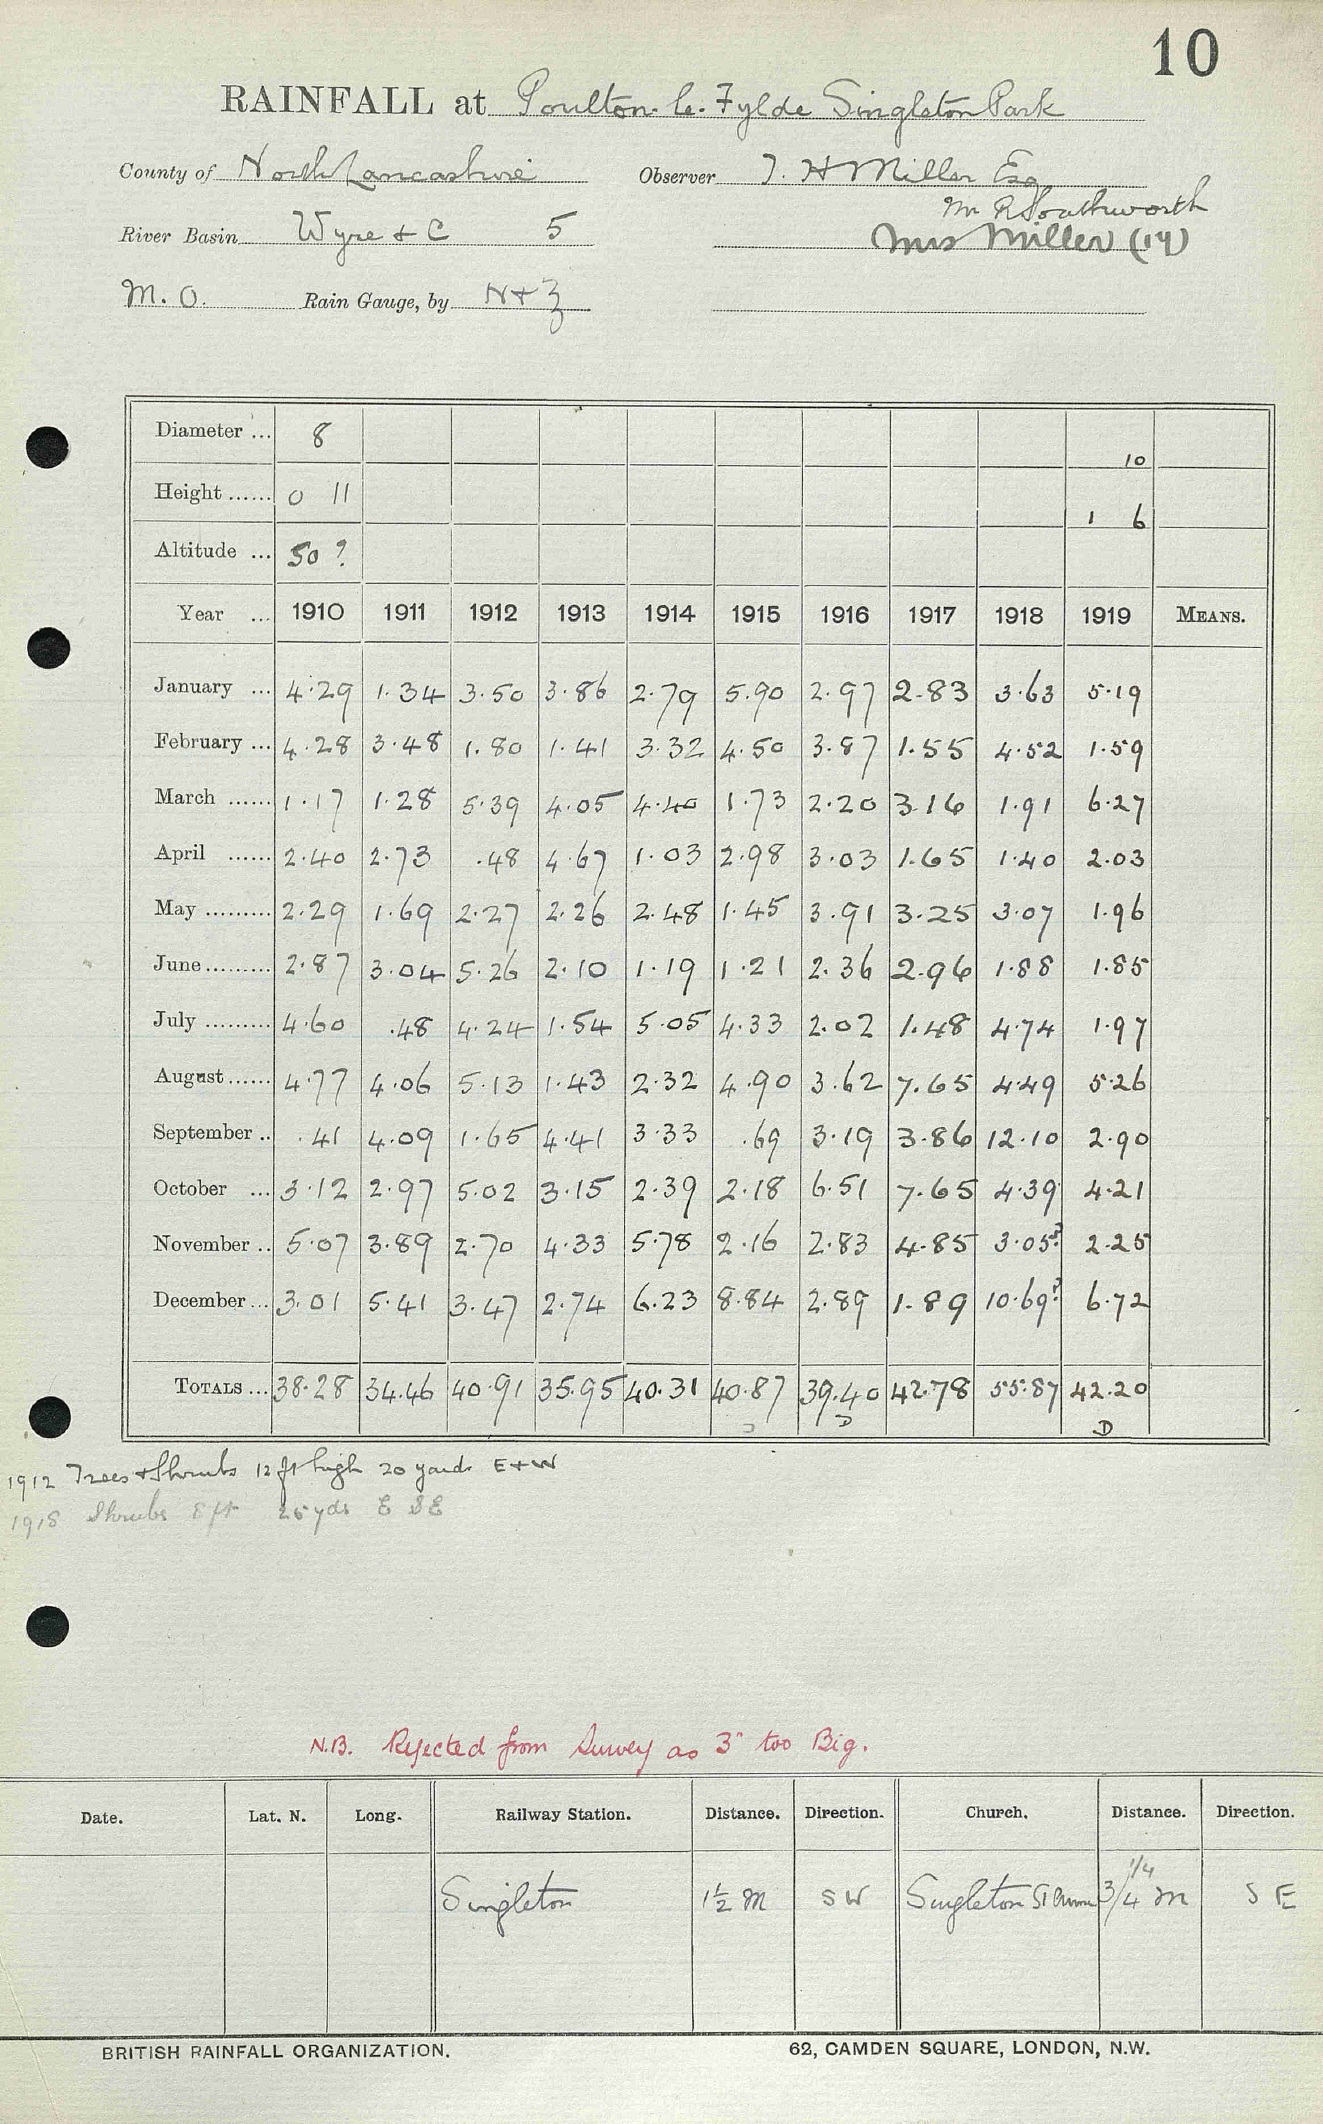 10
RAINFALL at Poulton-le-Fylde Singleton Park
County of North Lancashire Observer T. H Miller Esq
Mr R Southworth
River Basin Wyre & C 5 Mrs Miller (19)
M. O. Rain Gauge, by N & Z
Diameter ... 8 10
Height ...... 0 11 1 6
Altitude ... 50 ?
Year ... 1910 1911 1912 1913 1914 1915 1916 1917 1918 1919 MEANS.
January ... 4.29 1.34 3.50 3.86 2.79 5.90 2.97 2.83 3.63 5.19
February ... 4.28 3.48 1.80 1.41 3.32 4.50 3.87 1.55 4.52 1.59
March ...... 1.17 1.28 5.39 4.05 4.40 1.73 2.20 3.16 1.91 6.27
April ...... 2.40 2.73 .48 4.67 1.03 2.98 3.03 1.65 1.40 2.03
May ......... 2.29 1.69 2.27 2.26 2.48 1.45 3.91 3.25 3.07 1.96
June ......... 2.87 3.04 5.26 2.10 1.19 1.21 2.36 2.96 1.88 1.85
July ......... 4.60 .48 4.24 1.54 5.05 4.33 2.02 1.48 4.74 1.97
August ...... 4.77 4.06 5.13 1.43 2.32 4.90 3.62 7.65 4.49 5.26
September .. .41 4.09 1.65 4.41 3.33 .69 3.19 3.86 12.10 2.90
October ... 3.12 2.97 5.02 3.15 2.39 2.18 6.51 7.65 4.39 4.21
November .. 5.07 3.89 2.70 4.33 5.78 2.16 2.83 4.85 3.05? 2.25
December ... 3.01 5.41 3.47 2.74 6.23 8.84 2.89 1.89 10.69? 6.72
TOTALS ... 38.28 34.46 40.91 35.95 40.31 40.87 39.40 42.78 55.87 42.20
D D
1912 Trees & Shrubs 12 ft high 20 yards E & W
1918 Shrubs 8 ft 25 yds E SE
N.B. Rejected from Survey as 3" too Big.
Date. Lat. N. Long. Railway Station. Distance. Direction. Church. Distance. Direction.
1/4
Singleton 1½ m SW Singleton St 3/4 m S E
BRITISH RAINFALL ORGANIZATION. 62, CAMDEN SQUARE, LONDON, N.W.